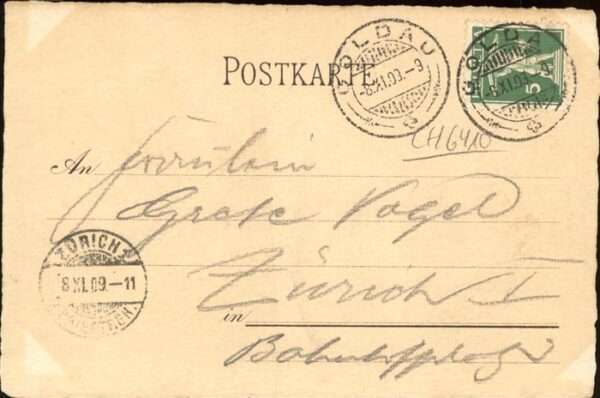 POSTKARTE
GOLDAU
-8.XI.09.-9
GOLDAU
-8.XI.09.
5
CH6410
An Fräulein
Grete Vogel
ZÜRICH
8.XI.09.-11
Zürich I
in
Bahnhofplatz